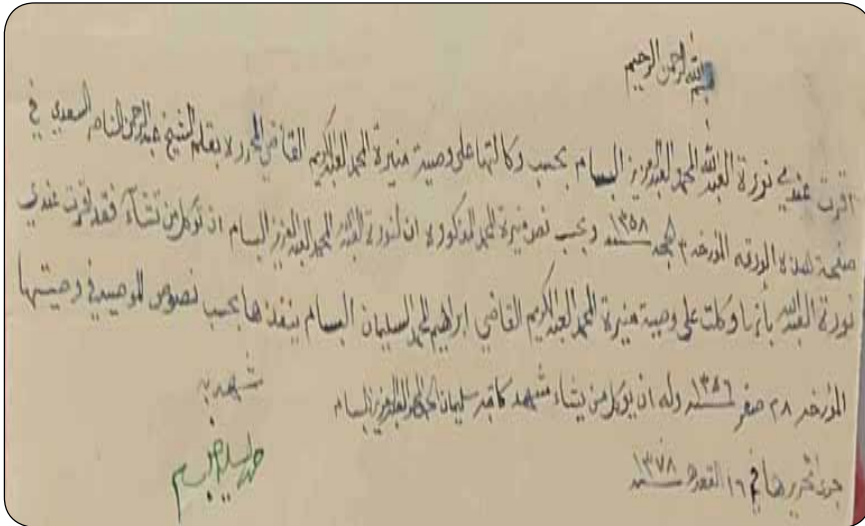 بسم الله الرحمن الرحيم
اقرت عندي نورة العبدالله المحمد العبدالعزيز البسام بحسب وكالتها على وصية منيرة المحمد العبدالكريم القاضي المحرره بقلم الشيخ عبدالرحمن الناصر السعدي في
صفحة هذه الورقه المؤرخه ١٣٥٨ وبحسب نص منيرة المحمد المذكوره ان لنورة العبدالله المحمد العبدالعزيز البسام ان توكل من تشآء فقد اقرت عندي
نورة العبدالله بانها وكلت على وصية منيرة المحمد العبدالكريم القاضي ابراهيم المحمد السليمان البسام ينفذها بحسب نصوص الموصيه في وصيتها
المؤرخه ٢٨ صفر ١٣٥٦ وله ان يوكل من يشاء شهد كاتبه سليمان المحمد العبدالعزيز البسام
شهد به
جرى تحريرها في ١٦ القعده سنه ١٣٧٨